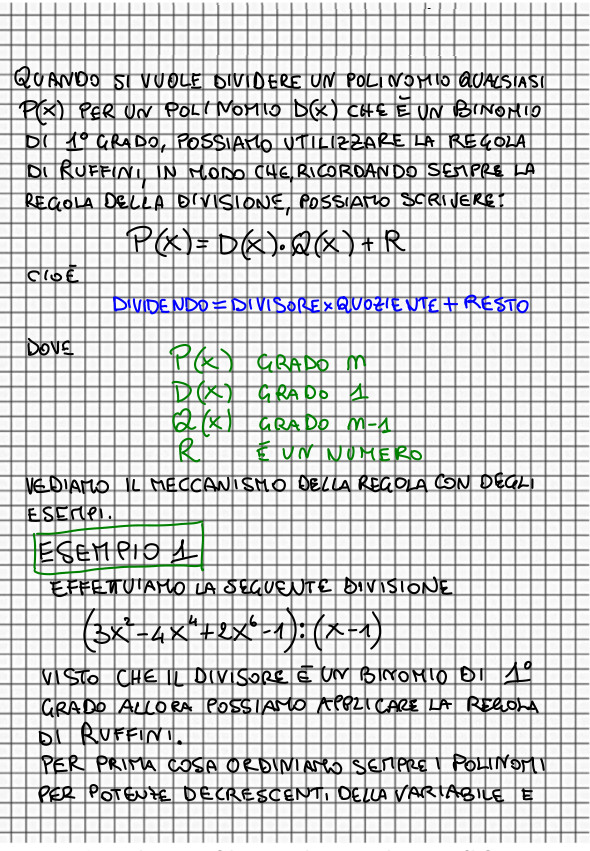 QUANDO SI VUOLE DIVIDERE UN POLINOMIO QUALSIASI
P(X) PER UN POLINOMIO D(X) CHE È UN BINOMIO
DI 1° GRADO, POSSIAMO UTILIZZARE LA REGOLA
DI RUFFINI, IN MODO CHE, RICORDANDO SEMPRE LA
REGOLA DELLA DIVISIONE, POSSIAMO SCRIVERE:
P(X) = D(X) · Q(X) + R
CIOÈ
DIVIDENDO = DIVISORE × QUOZIENTE + RESTO
DOVE
P(X) GRADO M
D(X) GRADO 1
Q(X) GRADO M-1
R È UN NUMERO
VEDIAMO IL MECCANISMO DELLA REGOLA CON DEGLI
ESEMPI.
ESEMPIO 1
EFFETTUIAMO LA SEGUENTE DIVISIONE
(3x² - 4x⁴ + 2x⁶ - 1) : (x - 1)
VISTO CHE IL DIVISORE È UN BINOMIO DI 1°
GRADO ALLORA POSSIAMO APPLICARE LA REGOLA
DI RUFFINI.
PER PRIMA COSA ORDINIAMO SEMPRE I POLINOMI
PER POTENZE DECRESCENTI DELLA VARIABILE E